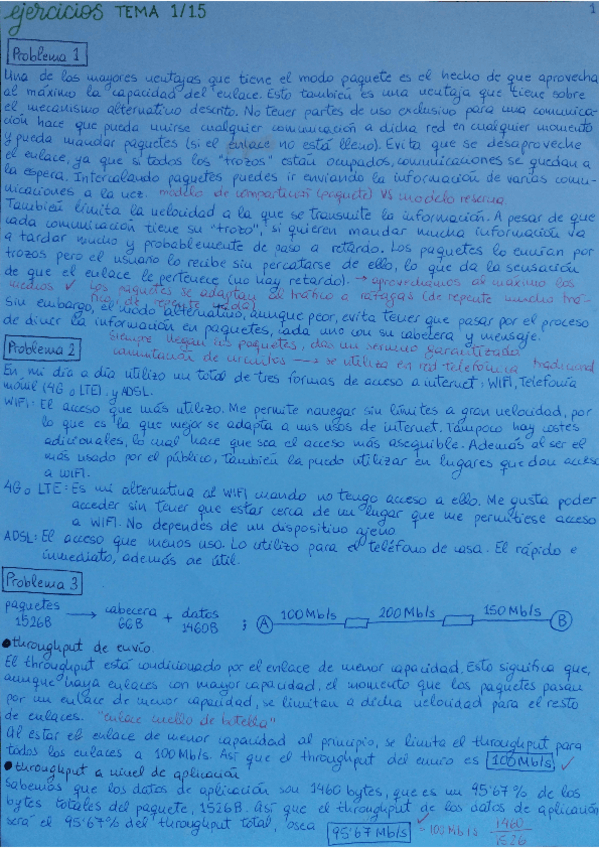 ejercicios TEMA 1/15
1
Problema 1
Una de las mayores ventajas que tiene el modo paquete es el hecho de que aprovecha
al máximo la capacidad del enlace. Esto también es una ventaja que tiene sobre
el mecanismo alternativo descrito. No tener partes de uso exclusivo para una comunica-
ción hace que pueda unirse cualquier comunicación a dicha red en cualquier momento
y pueda mandar paquetes (si el enlace no está lleno). Evita que se desaproveche
el enlace, ya que si todos los "trozos" están ocupados, comunicaciones se quedan a
la espera. Intercalando paquetes puedes ir enviando la información de varias comu-
nicaciones a la vez. modelo de compartición (paquete) VS modelo reserva
También limita la velocidad a la que se transmite la información. A pesar de que
cada comunicación tiene su "trozo", si quieren mandar mucha información va
a tardar mucho y probablemente de paso a retardo. Los paquetes lo envían por
trozos pero el usuario lo recibe sin percatarse de ello, lo que da la sensación
de que el enlace le pertenece (no hay retardo). → aprovechamos al máximo los
medios ✓ Los paquetes se adaptan al tráfico a ráfagas (de repente mucho trá-
fico, de repente nada)
Sin embargo, el modo alternativo, aunque peor, evita tener que pasar por el proceso
de dividir la información en paquetes, cada uno con su cabecera y mensaje.
siempre llegan los paquetes, dan un servicio garantizado
Problema 2
conmutación de circuitos → se utiliza en red telefónica tradicional
En mi día a día utilizo un total de tres formas de acceso a internet: WIFI, Telefonía
móvil (4G o LTE), y ADSL.
WIFI: El acceso que más utilizo. Me permite navegar sin límites a gran velocidad, por
lo que es la que mejor se adapta a mis usos de internet. Tampoco hay costes
adicionales, lo cual hace que sea el acceso más asequible. Además al ser el
más usado por el público, también la puedo utilizar en lugares que dan acceso
a WIFI.
4G o LTE: Es mi alternativa al WIFI cuando no tengo acceso a ello. Me gusta poder
acceder sin tener que estar cerca de un lugar que me permitiese acceso
a WIFI. No dependes de un dispositivo ajeno
ADSL: El acceso que menos uso. Lo utilizo para el teléfono de casa. El rápido e
inmediato, además de útil.
Problema 3
paquetes 1526B → cabecera 66B + datos 1460B ; A 100Mb/s 200Mb/s 150Mb/s B
• throughput de envío.
El throughput está condicionado por el enlace de menor capacidad. Esto significa que,
aunque haya enlaces con mayor capacidad, el momento que los paquetes pasan
por un enlace de menor capacidad, se limitan a dicha velocidad para el resto
de enlaces. "enlace cuello de botella"
Al estar el enlace de menor capacidad al principio, se limita el throughput para
todos los enlaces a 100Mb/s. Así que el throughput del envío es 100Mb/s ✓
• throughput a nivel de aplicación
Sabemos que los datos de aplicación son 1460 bytes, que es un 95'67% de los
bytes totales del paquete, 1526B. Así que el throughput de los datos de aplicación
será el 95'67% del throughput total, osea 95'67 Mb/s ✓ = 100 Mb/s 1460/1526